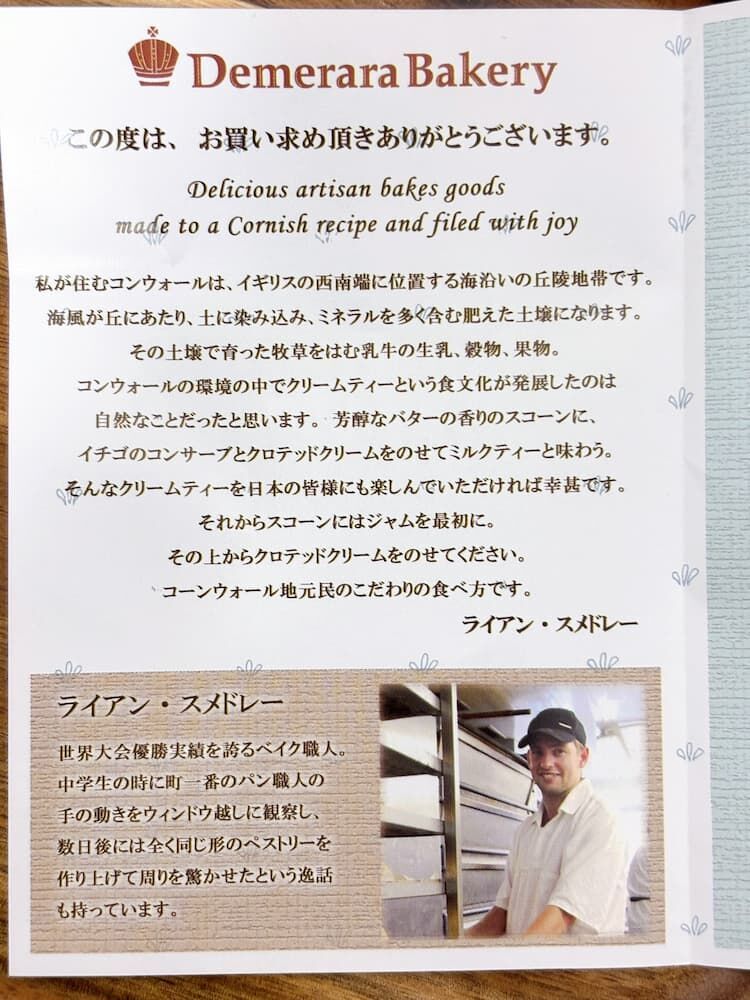 Demerara Bakery
この度は、お買い求め頂きありがとうございます。
Delicious artisan bakes goods
made to a Cornish recipe and filed with joy
私が住むコンウォールは、イギリスの西南端に位置する海沿いの丘陵地帯です。
海風が丘にあたり、土に染み込み、ミネラルを多く含む肥えた土壌になります。
その土壌で育った牧草をはむ乳牛の生乳、穀物、果物。
コンウォールの環境の中でクリームティーという食文化が発展したのは
自然なことだったと思います。芳醇なバターの香りのスコーンに、
イチゴのコンサーブとクロテッドクリームをのせてミルクティーと味わう。
そんなクリームティーを日本の皆様にも楽しんでいただければ幸甚です。
それからスコーンにはジャムを最初に。
その上からクロテッドクリームをのせてください。
コーンウォール地元民のこだわりの食べ方です。
ライアン・スメドレー
ライアン・スメドレー
世界大会優勝実績を誇るベイク職人。
中学生の時に町一番のパン職人の
手の動きをウィンドウ越しに観察し、
数日後には全く同じ形のペストリーを
作り上げて周りを驚かせたという逸話
も持っています。